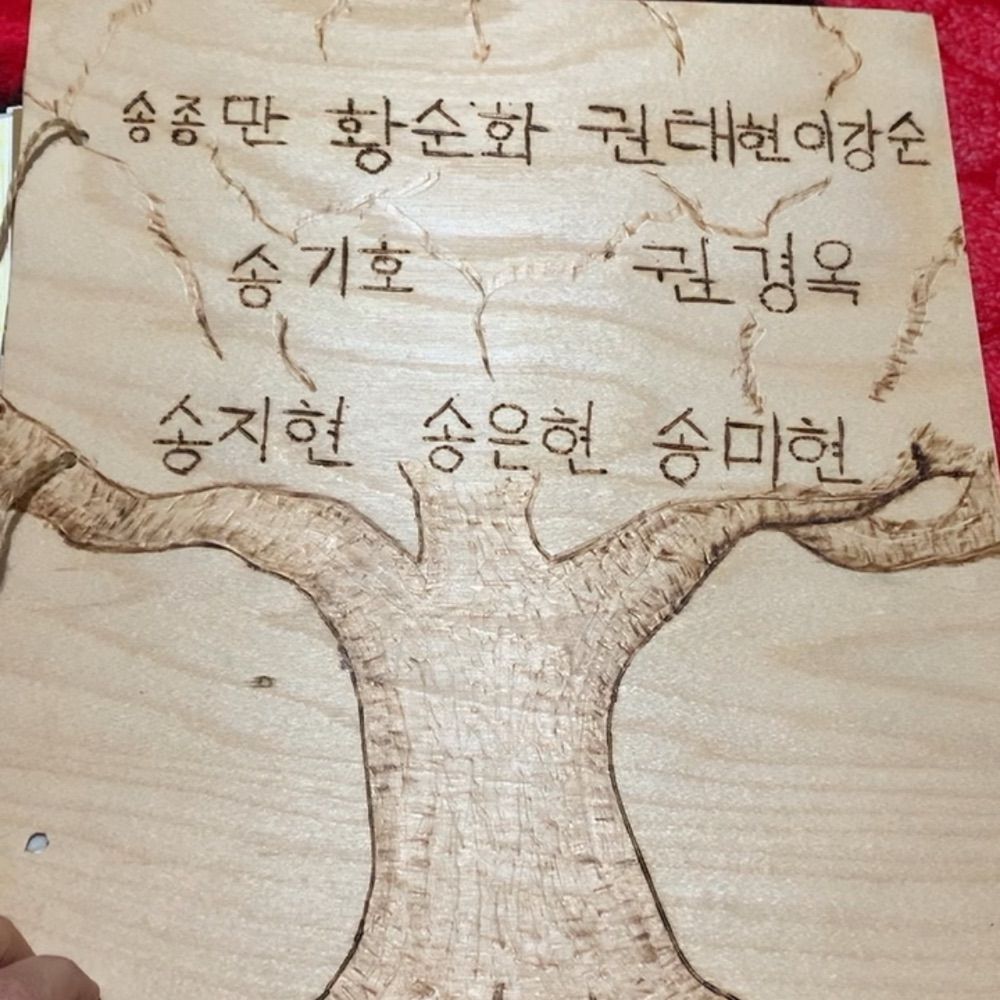 송종만 황순화 권태현 이강순
송기호 권경옥
송지현 송은현 송미현